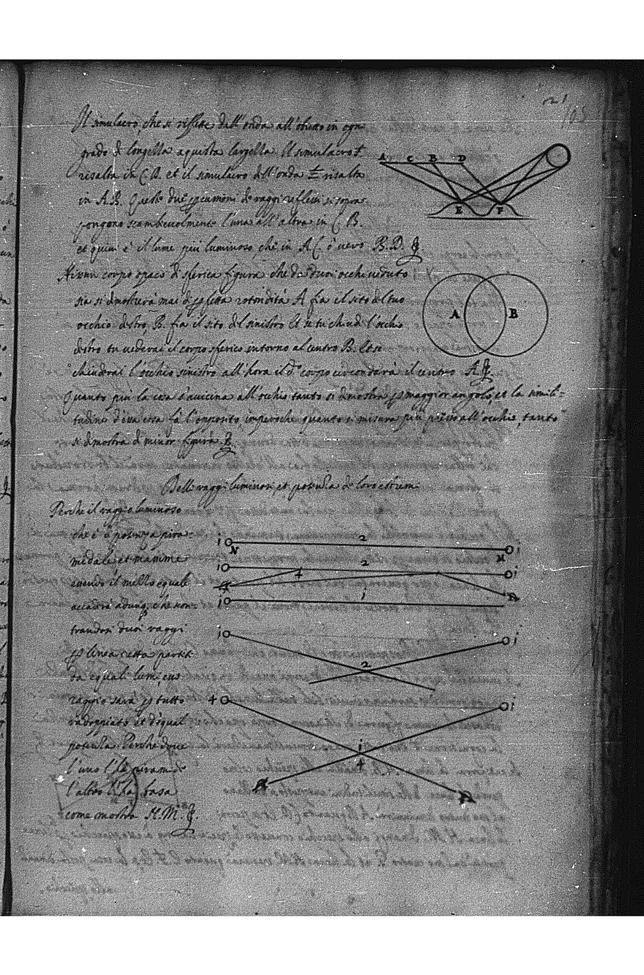 21
103
Il simulacro, che si reflette dall'onda all'obietto in ogni
grado di longezza aquista largezza. Il simulacro F
risalta in C B. et il simulacro dell'onda E risalta
in A B. Queste due specie di raggi reflessi si sopra
pongono scambievolmente l'una all'altra in C B.
et quivi è il lume più luminoso, che in A C ò vero B. D.
A C B D
E F
Niuno corpo opaco di sferica figura che da duoi occhi veduto
sia si dimostrerà mai di perfetta rotondità A sia il sito del tuo
occhio destro, B. sia il sito del sinistro et se tu chiudi l'occhio
destro tu vederai il corpo sferico intorno al centro B. et se
chiuderai l'occhio sinistro all'hora il d.º corpo circonderà il centro A.
A B
Quanto più la cosa s'avicina all'occhio tanto si dimostra per maggior angolo, et la simili-
tudine d'essa cosa fà l'opposito imperoche quanto si misura più presso all'occhio, tanto
si dimostra di minor figura.
Delli raggi luminosi, et potentia de loro estremi
Perche il raggio luminoso
che è di potenza pira-
midale et massime
essendo il mezzo equale
accaderà adunque, che scon-
trandosi duoi raggi
per linea retta
equali luminoso
raggio sarà per tutto
radoppiato et d'equal
potentia. Perche dove
l'uno l'ha piramide
l'altro l'ha basa
come mostra N. M.
i 2 i
N M
i 2 i
4
i 1
i i
2
4 i
i
4